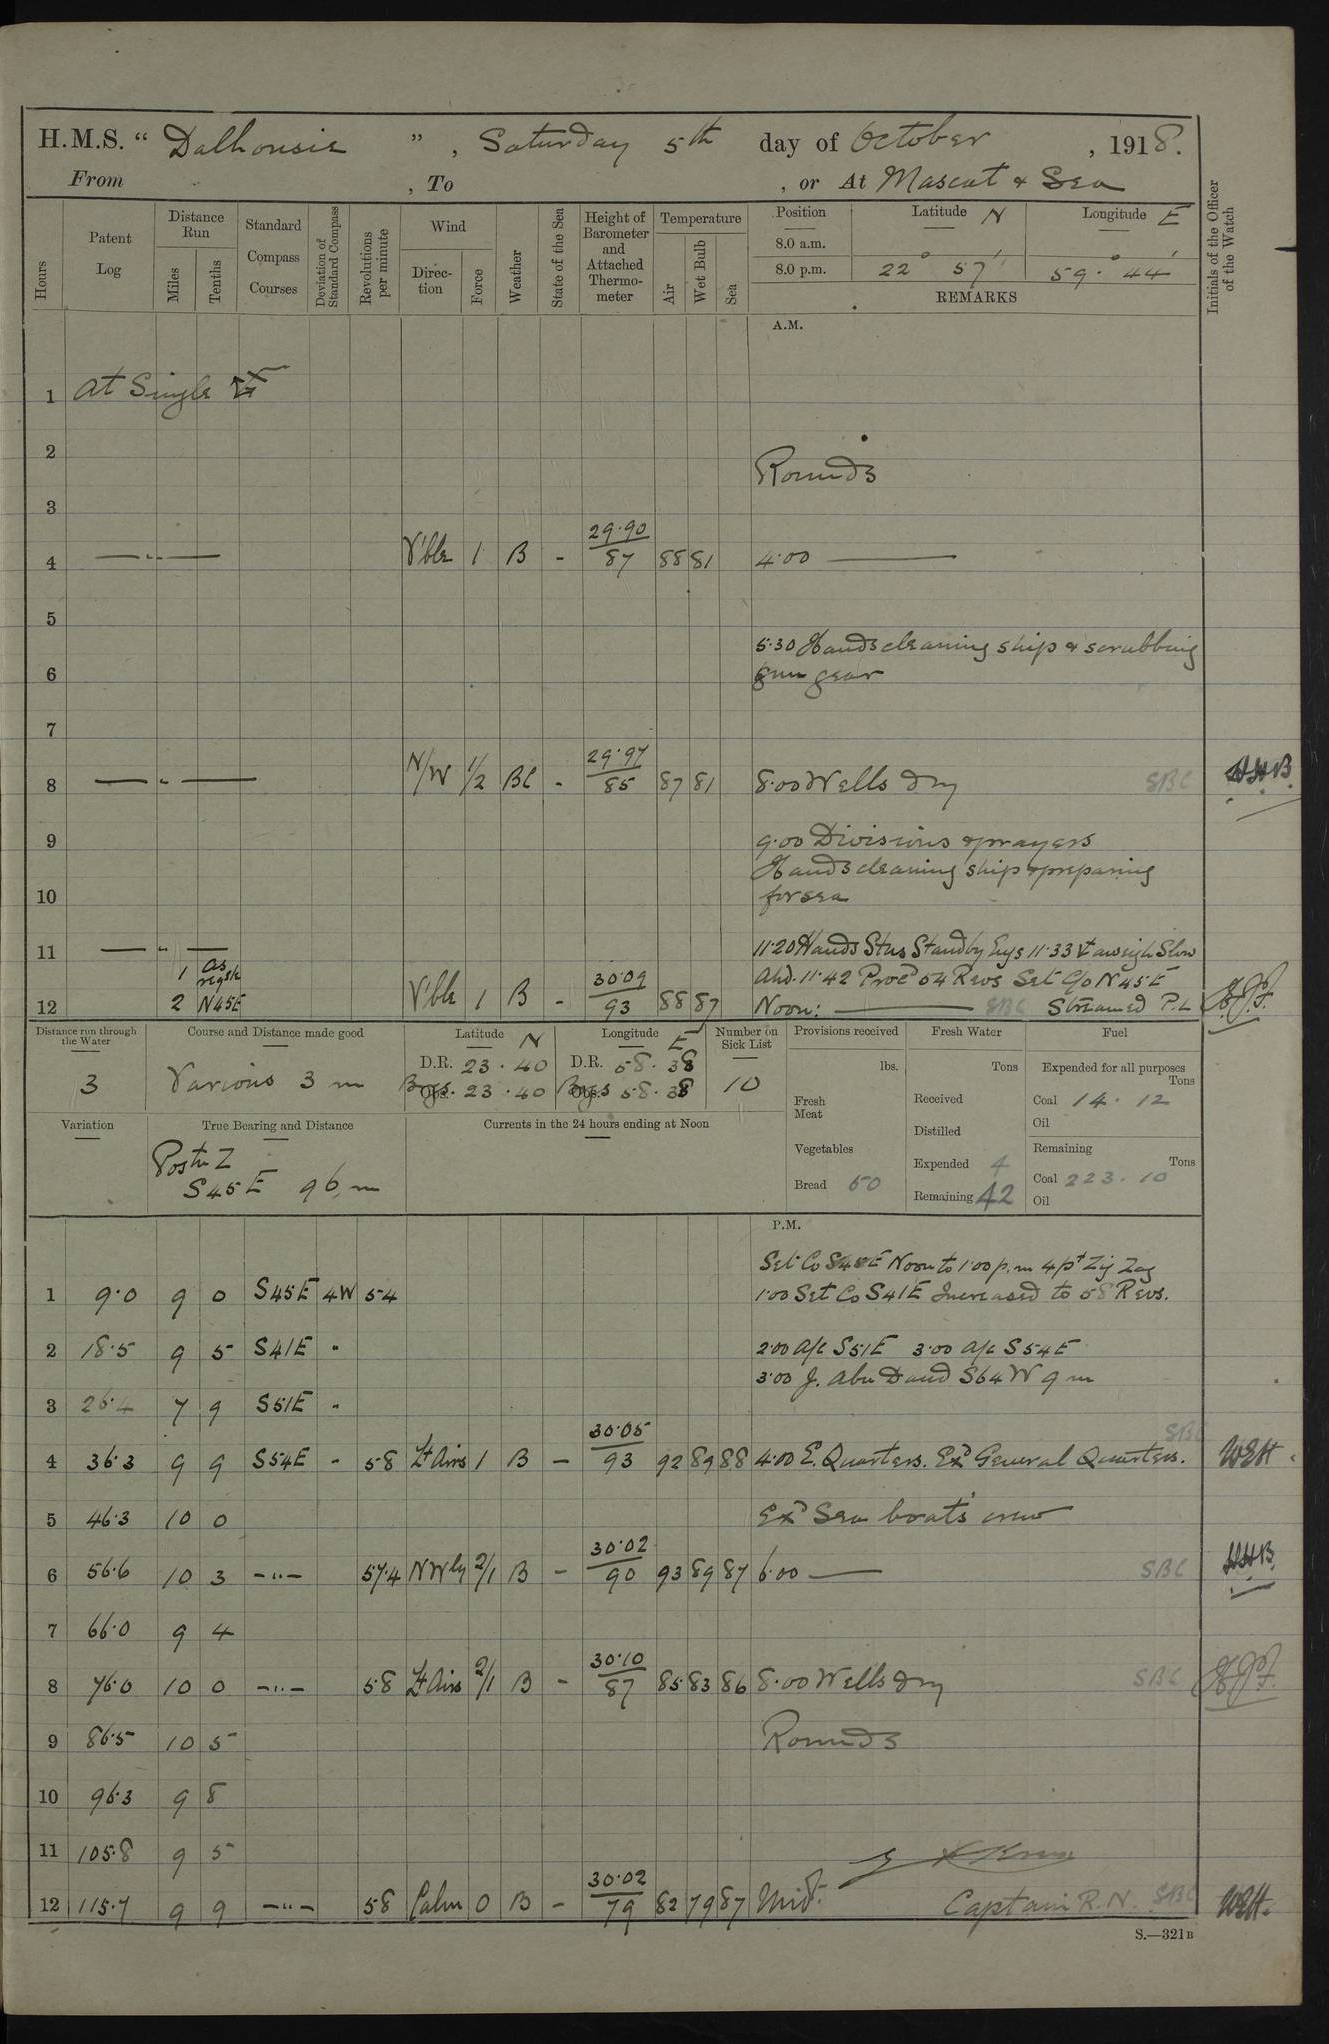 H.M.S. “ Dalhousie ” , Saturday 5th day of October , 1918.
From , To , or At Mascat & Sea
Hours
Patent Log
Distance Run
Miles
Tenths
Standard Compass Courses
Deviation of Standard Compass
Revolutions per minute
Wind
Direction
Force
Weather
State of the Sea
Height of Barometer and Attached Thermometer
Temperature
Air
Wet Bulb
Sea
Position Latitude N Longitude E
8.0 a.m.
8.0 p.m. 22° 57' 59° 44'
REMARKS
Initials of the Officer of the Watch
A.M.
1 At Single
2
Rounds
3
4 —"— V'ble 1 B - 29.90/87 88 81 4.00 ———
5
5.30 Hands cleaning ship & scrubbing
6 gun gear
7
8 —"— N/W 1/2 BC - 29.97/85 87 81 8.00 Wells dry SBC HHB
9 9.00 Divisions & prayers
Hands cleaning ship & preparing
10 for sea
11 —"— 11.20 Hands Stns Standby Engs 11.33 aweigh Slow
1 as reqsk Ahd. 11.42 Proc'd 54 Revs Set C/o N45E
12 2 N45E V'ble 1 B - 30.09/93 88 87 Noon: ——— SBC Streamed P.L
Distance run through the Water
3
Course and Distance made good
Various 3 m
Latitude N
D.R. 23.40
Obs. Brgs. 23.40
Longitude E
D.R. 58.38
Obs. Brgs 58.38
Number on Sick List
10
Provisions received
lbs.
Fresh Meat
Vegetables
Bread 50
Fresh Water
Tons
Received
Distilled
Expended 4
Remaining 42
Fuel
Expended for all purposes
Tons
Coal 14.12
Oil
Remaining
Tons
Coal 223.10
Oil
Variation
True Bearing and Distance
Postn Z
S45E 96 m
Currents in the 24 hours ending at Noon
P.M.
Set Co S45E Noon to 1.00 p.m 4 pt Zig Zag
1 9.0 9 0 S45E 4W 54 1.00 Set Co S41E Increased to 58 Revs.
2 18.5 9 5 S41E " 2.00 A/c S51E 3.00 A/c S54E
3.00 J. Abu Daud S64W 9 m
3 26.4 7 9 S51E "
4 36.3 9 9 S54E - 58 Lt Airs 1 B — 30.05/93 92 89 88 4.00 E. Quarters. Exd General Quarters. SBC WEH.
5 46.3 10 0 Exd Sea boat's crew
6 56.6 10 3 —"— 57.4 NWly 2/1 B — 30.02/90 93 89 87 6.00 —— SBC HHB
7 66.0 9 4
8 76.0 10 0 —"— 58 Lt Airs 2/1 B - 30.10/87 85 83 86 8.00 Wells dry SBC
9 86.5 10 5 Rounds
10 96.3 9 8
11 105.8 9 5
12 115.7 9 9 —"— 58 Calm 0 B — 30.02/79 82 79 87 Midt. Captain R.N. SBC WEH.
S.—321B